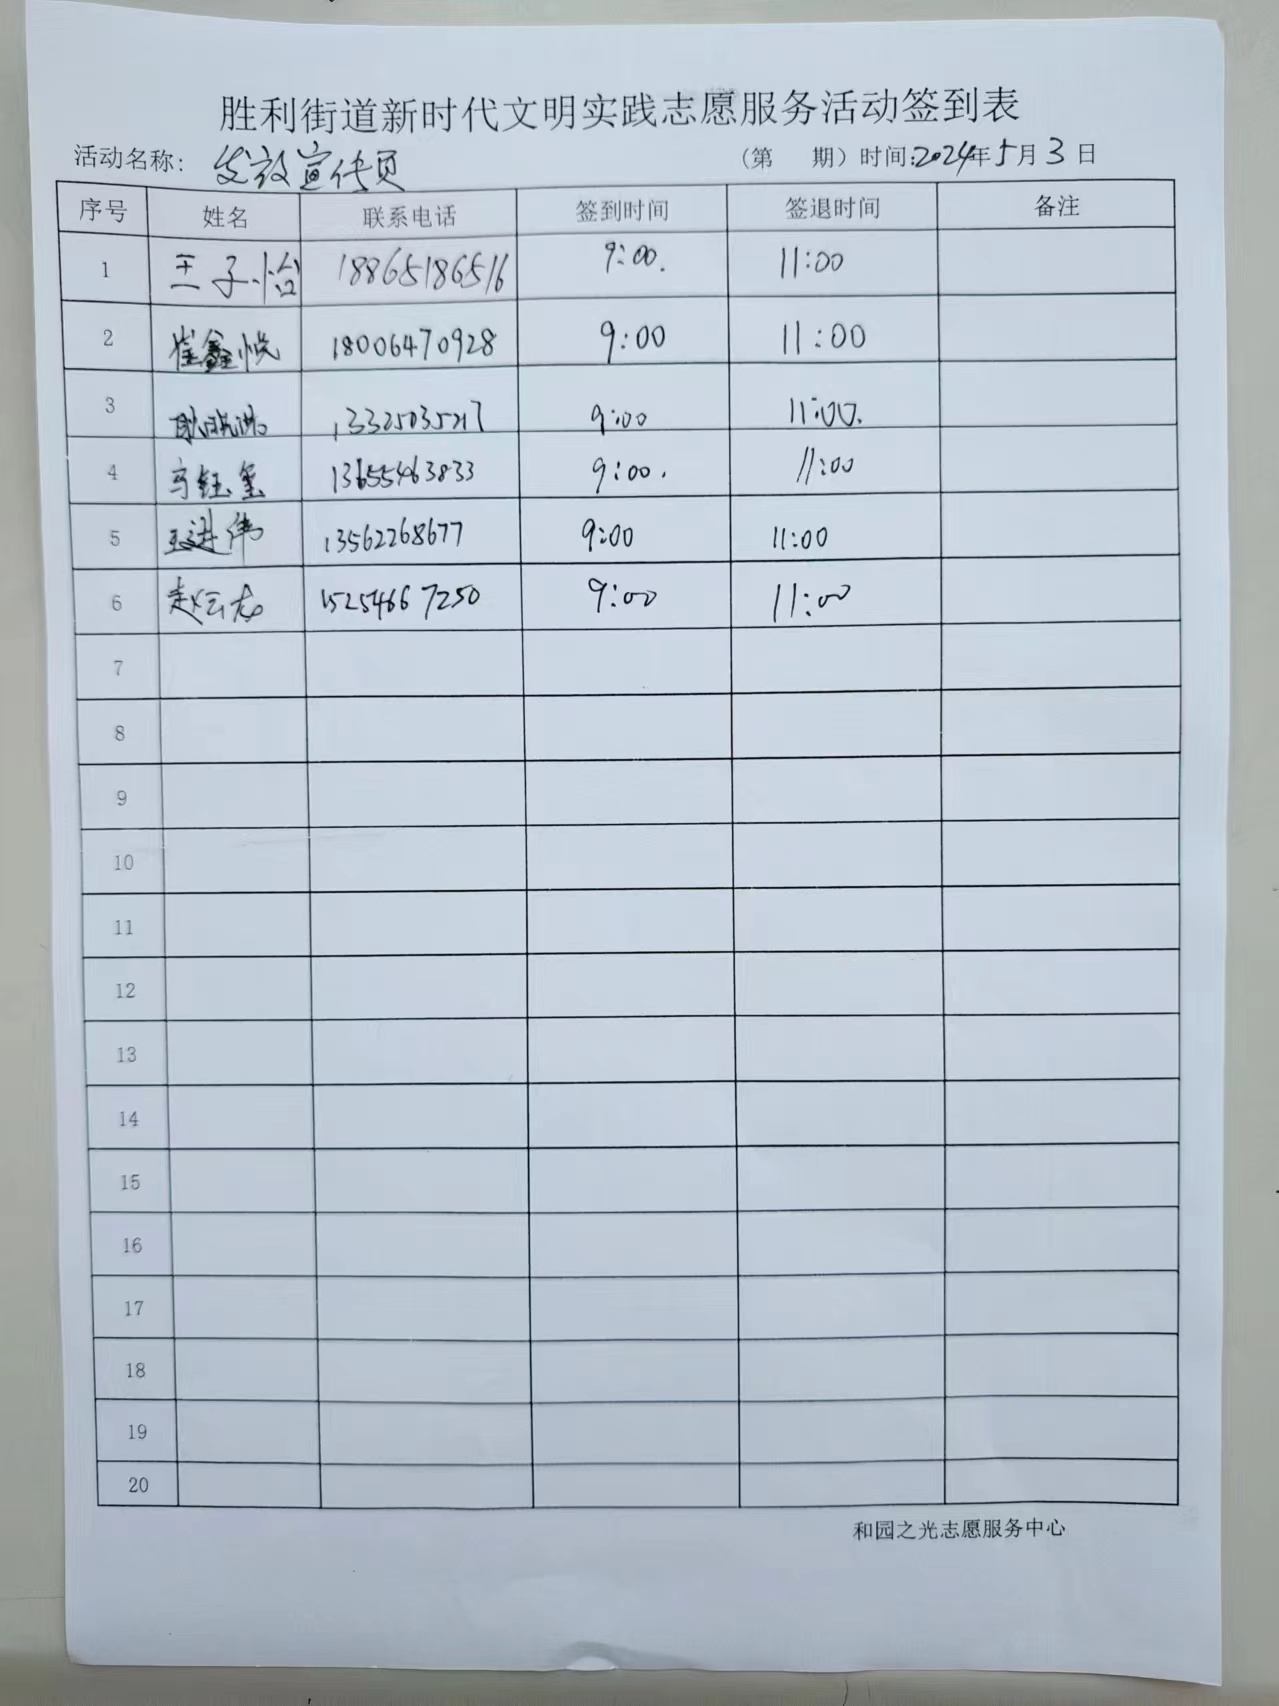 胜利街道新时代文明实践志愿服务活动签到表
活动名称: 发放宣传页 (第 期) 时间:2024年5月3日
序号 姓名 联系电话 签到时间 签退时间 备注
1 王子怡 18865186516 9:00. 11:00
2 崔鑫悦 18006470928 9:00 11:00
3 13325035217 9:00 11:00.
4 马钰玺 13655463833 9:00. 11:00
5 王进伟 13562268677 9:00 11:00
6 赵云龙 15254667250 9:00 11:00
7
8
9
10
11
12
13
14
15
16
17
18
19
20
和园之光志愿服务中心